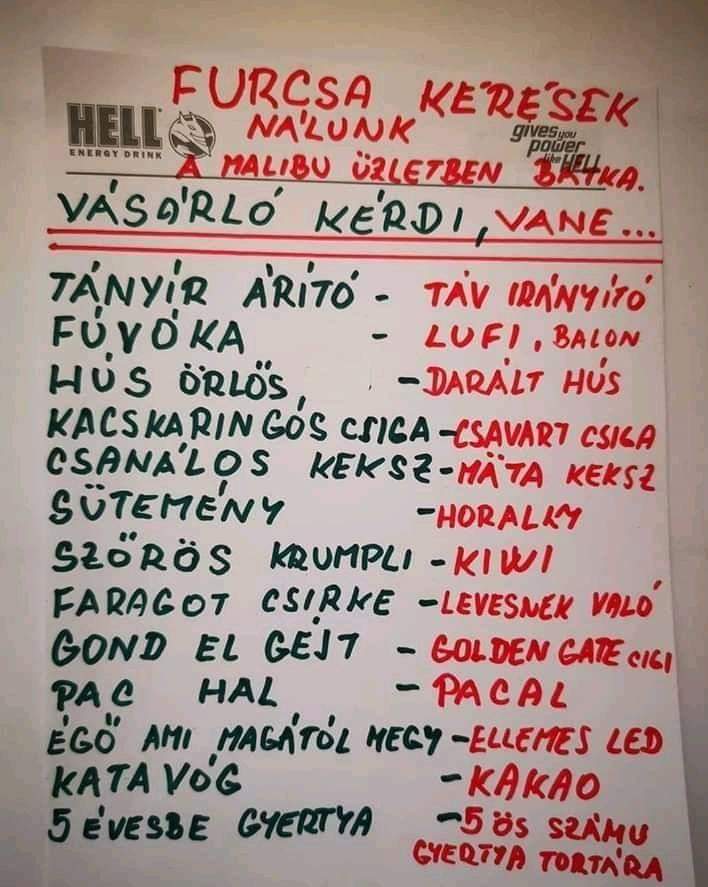 FURCSA KÉRÉSEK
HELL
ENERGY DRINK
NÁLUNK
gives you
power
like HELL
A MALIBU ÜZLETBEN BÁTKA.
VÁSÁRLÓ KÉRDI, VANE...
TÁNYÍR ÁRÍTÓ - TÁV IRÁNYÍTÓ
FÚVÓKA - LUFI, BALON
HÚS ÖRLŐS, - DARÁLT HÚS
KACSKARINGÓS CSIGA - CSAVART CSIGA
CSANÁLOS KEKSZ - MÄTA KEKSZ
SÜTEMÉNY - HORALKY
SZŐRÖS KRUMPLI - KIWI
FARAGOT CSIRKE - LEVESNEK VALÓ
GOND EL GÉJT - GOLDEN GATE CIGI
PAC HAL - PACAL
ÉGŐ AMI MAGÁTÓL MEGY - ELLEMES LED
KATAVÓG - KAKAO
5 ÉVESBE GYERTYA - 5 ÖS SZÁMU
GYERTYA TORTÁRA